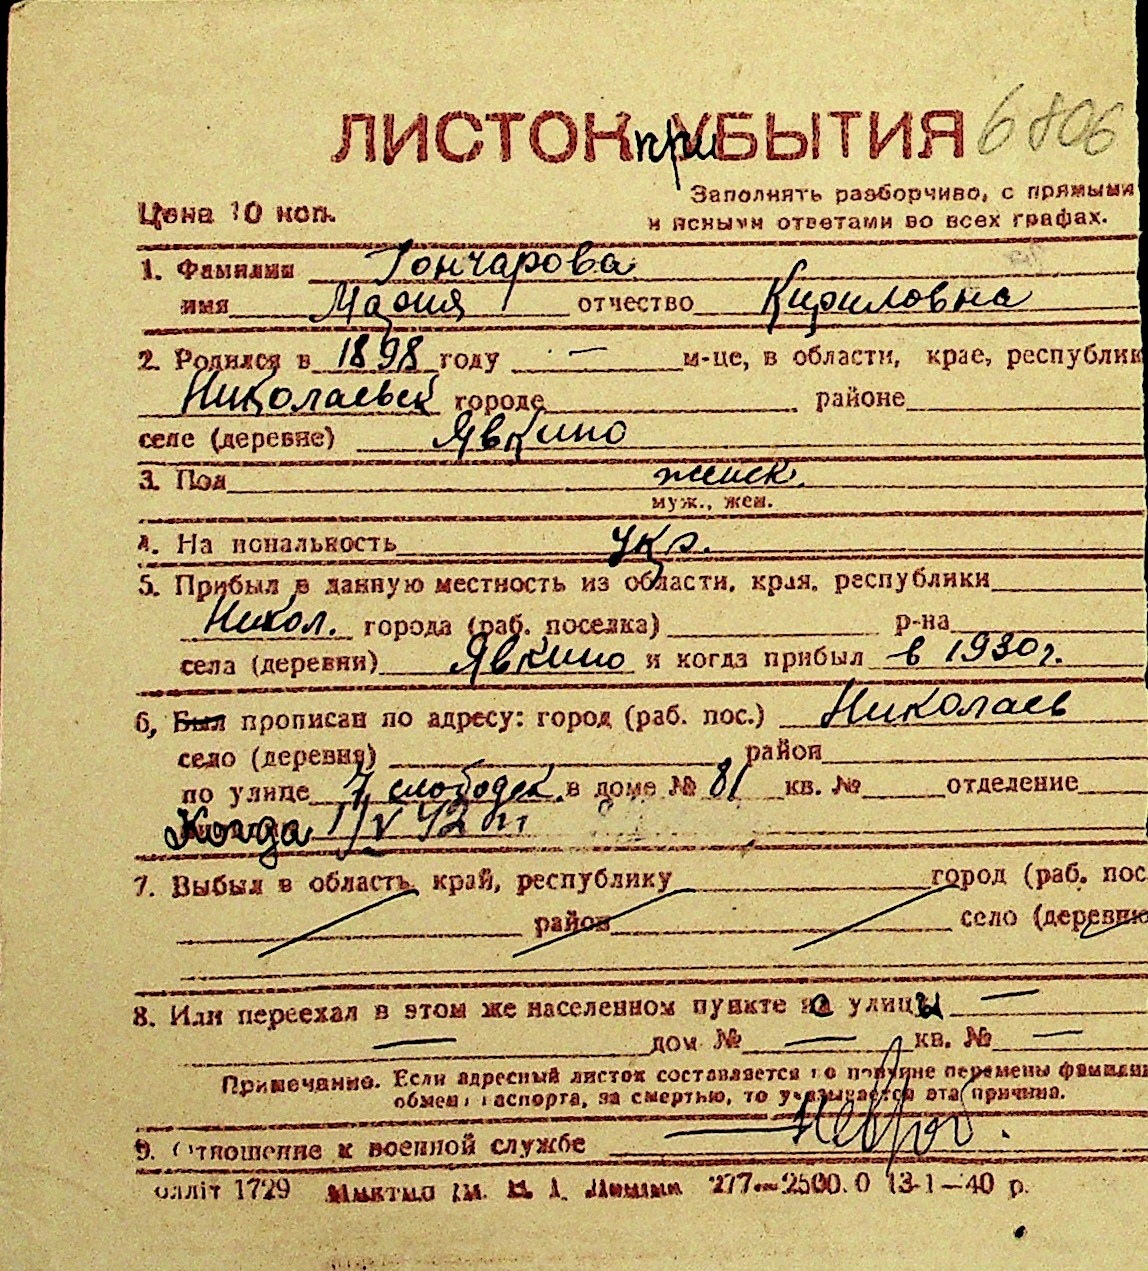 ЛИСТОК прибытия 6806
Цена 10 коп.
Заполнять разборчиво, с прямыми
и ясными ответами во всех графах.
1. Фамилия Гончарова
имя Мария отчество Кириловна
2. Родился в 1898 году — м-це, в области, крае, республик
Николаевск городе районе
селе (деревне) Явкино
3. Пол женск.
муж., жен.
4. На иональность укр.
5. Прибыл в данную местность из области, края, республики
Никол. города (раб. поселка) р-на
села (деревни) Явкино и когда прибыл в 1930 г.
6, Был прописан по адресу: город (раб. пос.) Николаев
село (деревня) район
по улице 7 слободск. в доме № 81 кв. № отделение
Когда 1/V 42
7. Выбыл в область, край, республику город (раб. пос.
район село (деревню
8. Или переехал в этом же населенном пункте с улицы —
— дом № — кв. № —
Примечание. Если адресный листок составляется по причине перемены фамилии
обмена паспорта, за смертью, то указывается эта причина.
9. Отношение к военной службе —
олліт 1729 277—2500.0 13-1—40 р.